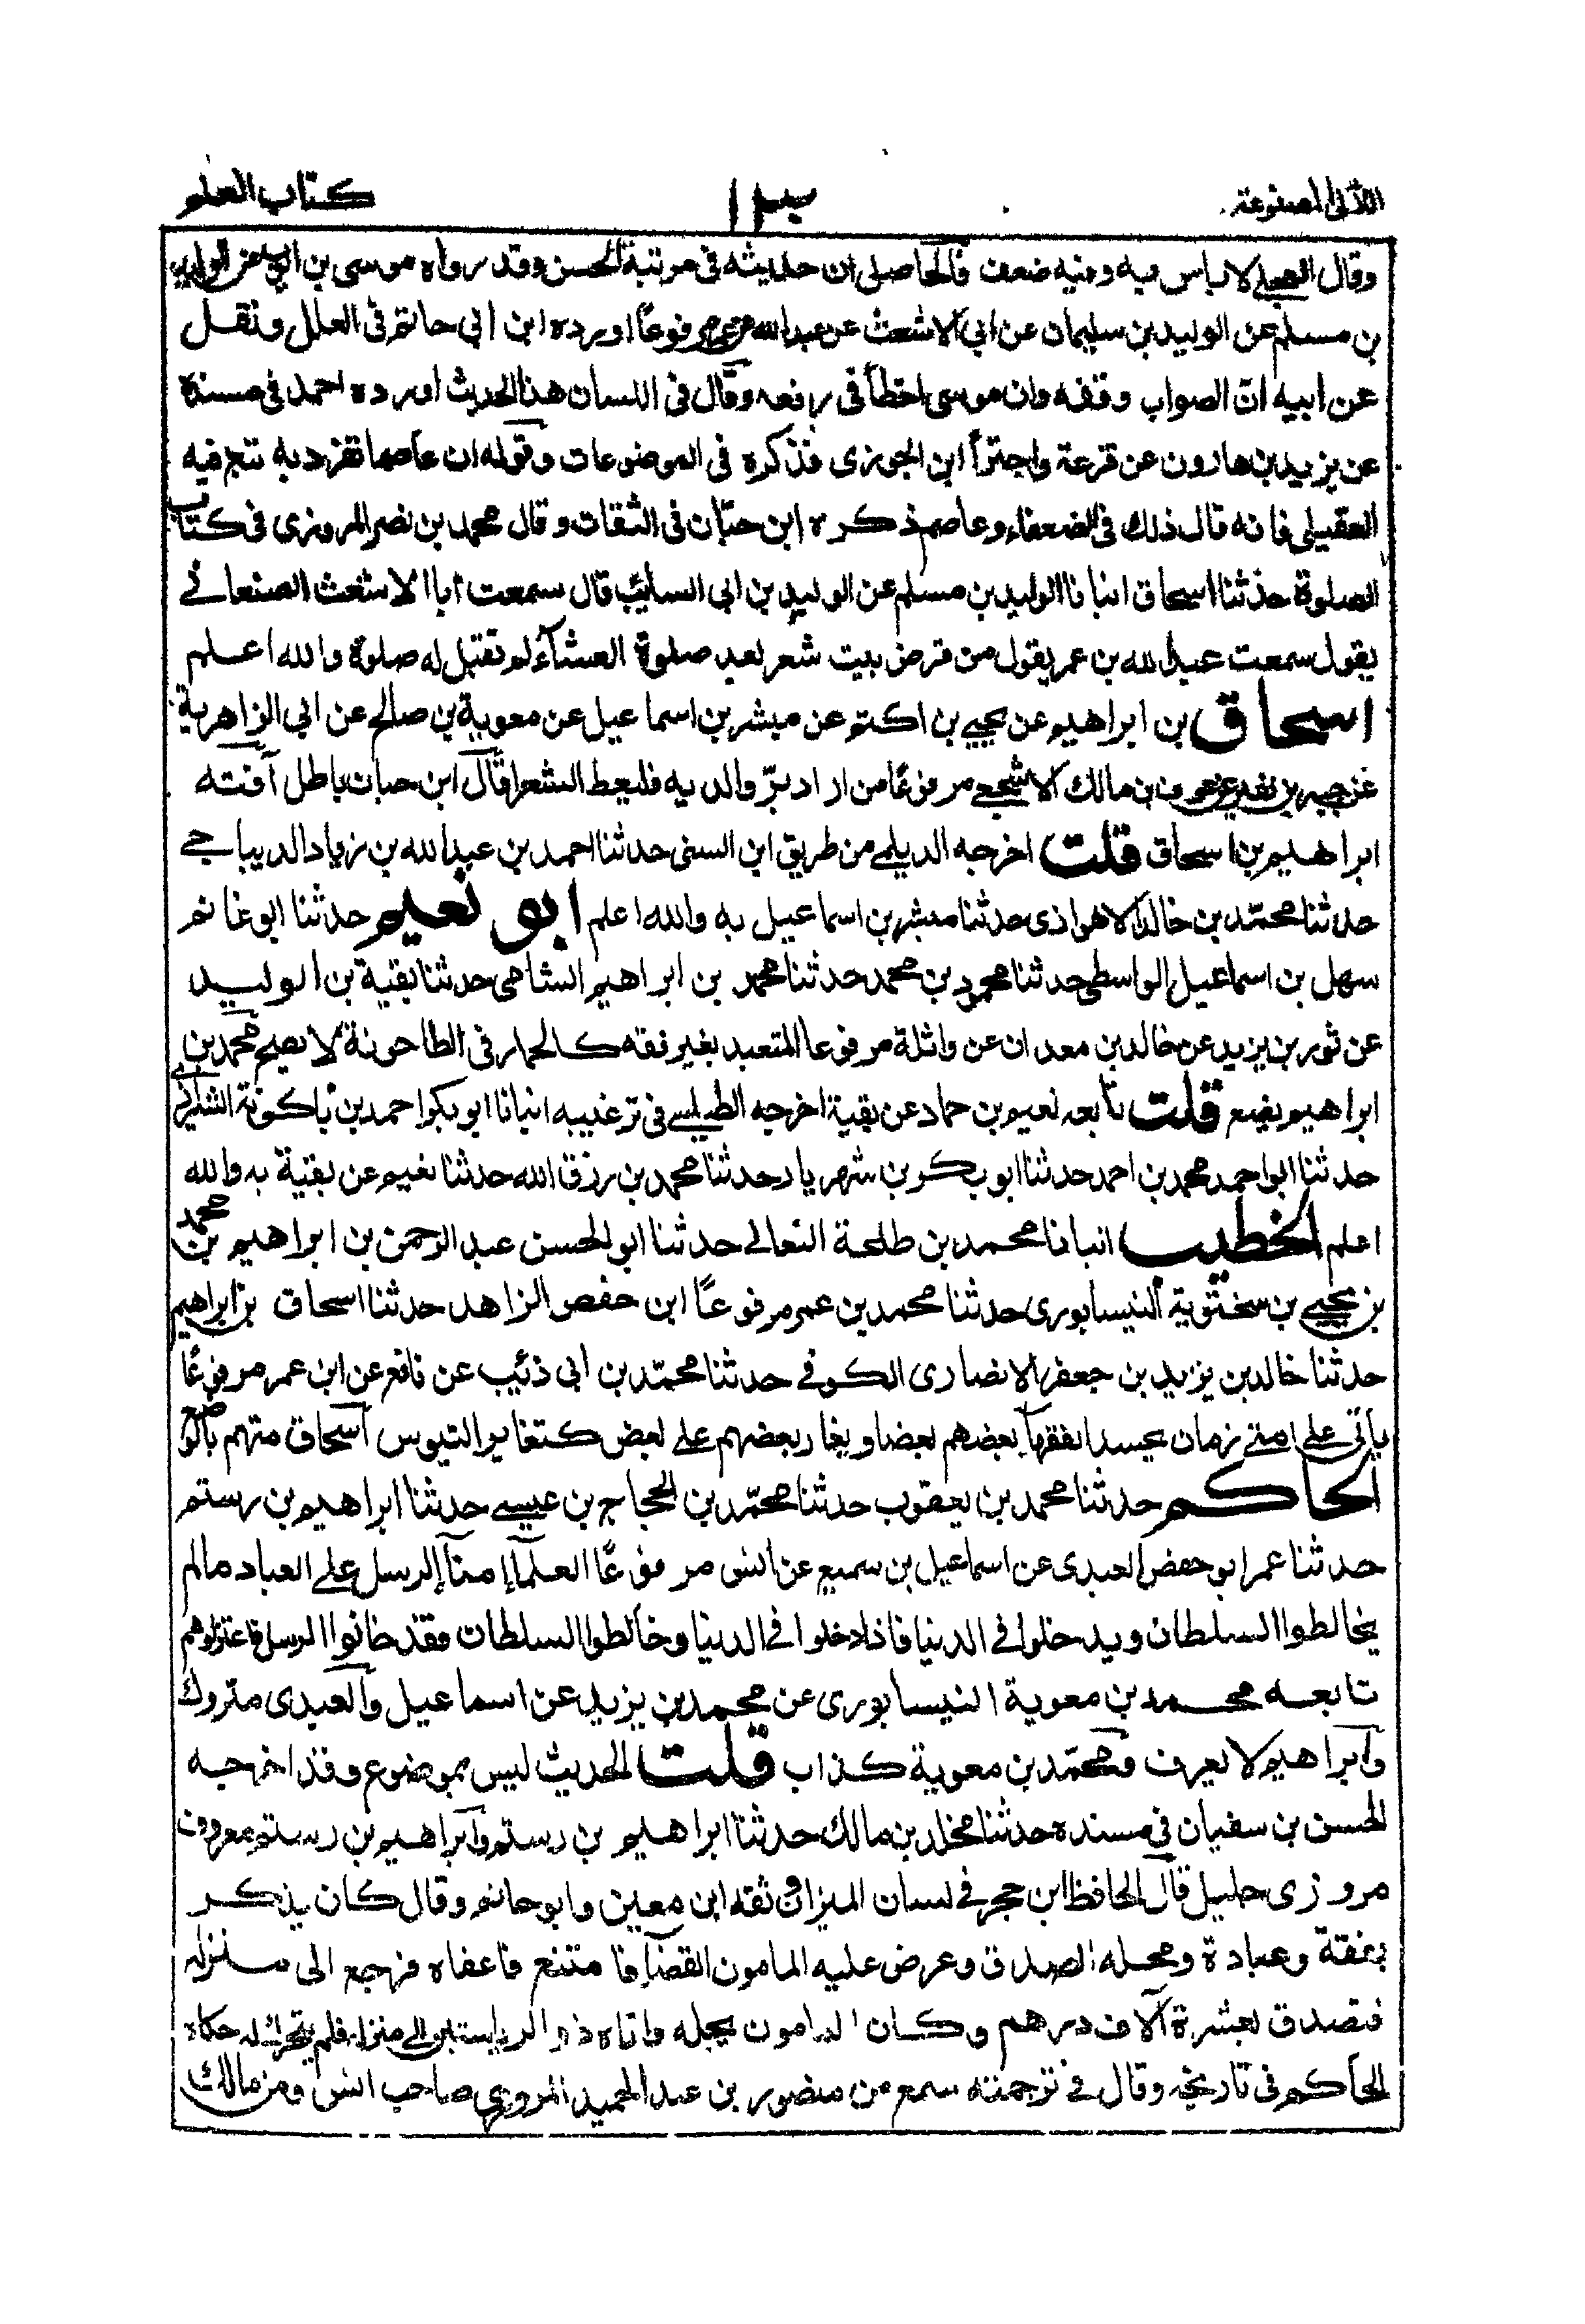 اللآلى المصنوعة
كتاب العلم
وقال العجلي لا باس به وفيه ضعف فالحاصل ان حديثه في مرتبة الحسن وقد رواه موسى بن ايوب عن الوليد
بن مسلم عن الوليد بن سليمان عن ابي الاشعث عن عبد الله بن عمر مرفوعًا اورده ابن ابي حاتم في العلل ونقل
عن ابيه انّ الصواب وقفه وان موسى اخطأ في رفعه وقال في اللسان هذا الحديث اورده احمد في مسنده
عن يزيد بن هارون عن قزعة واجترأ ابن الجوزى فذكره في الموضوعات وقوله ان عاصما تفرد به تبع فيه
العقيلي فانه قال ذلك في الضعفاء وعاصم ذكره ابن حبّان في الثقات وقال محمد بن نصر المروزى في كتاب
الصلوة حدثنا اسحاق انبانا الوليد بن مسلم عن الوليد بن ابي السائب قال سمعت ابا الاشعث الصنعاني
يقول سمعت عبد الله بن عمر يقول من قرض بيت شعر بعد صلوة العشآء لم تقبل له صلوة والله اعلم
اسحاق بن ابراهيم عن يحيى بن اكثم عن مبشر بن اسماعيل عن معوية بن صالح عن ابي الزاهرية
عن جبير بن نفير عن عوف بن مالك الاشجعي مرفوعًا من اراد برّ والديه فليعط الشعرا قال ابن حبان باطل آفته
ابراهيم بن اسحاق قلت اخرجه الديلمي من طريق ابن السنى حدثنا احمد بن عبد الله بن زياد الديباجي
حدثنا محمّد بن خالد الاهوازى حدثنا مبشر بن اسماعيل به والله اعلم ابو نعيم حدثنا ابو غانم
سهل بن اسماعيل الواسطي حدثنا محمود بن محمد حدثنا محمد بن ابراهيم الشامى حدثنا بقية بن الوليد
عن ثور بن يزيد عن خالد بن معدان عن واثلة مرفوعا المتعبد بغير فقه كالحمار في الطاحونة لا يصح محمد بن
ابراهيم يضع قلت تابعه نعيم بن حماد عن بقية اخرجه الطبسي في ترغيبه انبانا ابو بكر احمد بن باكوية الشيرازي
حدثنا ابو احمد محمد بن احمد حدثنا ابو بكر بن شهريار حدثنا محمد بن رزق الله حدثنا نعيم عن بقية به والله
اعلم الخطيب انبانا محمد بن طلحة النعالي حدثنا ابو الحسن عبد الرحمن بن ابراهيم بن محمد
بن يحيى بن سختوية النيسابورى حدثنا محمد بن عمر مرفوعًا ابن حفص الزاهد حدثنا اسحاق بن ابراهيم
حدثنا خالد بن يزيد بن جعفر الانصارى الكوفي حدثنا محمّد بن ابي ذئيب عن نافع عن ابن عمر مرفوعًا
يأتي على امتي زمان يحسد الفقهآ بعضهم بعضا ويغار بعضهم على بعض كتغاير التيوس اسحاق متهم بالوضع
الحاكم حدثنا محمد بن يعقوب حدثنا محمّد بن الحجاج بن عيسى حدثنا ابراهيم بن رستم
حدثنا عمر ابو حفص العبدى عن اسماعيل بن سميع عن انس مرفوعًا العلمآ امنآ الرسل على العباد مالم
يخالطوا السلطان ويدخلوا في الدنيا فاذا دخلوا في الدنيا وخالطوا السلطان فقد خانوا الرسل فاعتزلوهم
تابعه محمد بن معوية النيسابورى عن محمد بن يزيد عن اسماعيل والعبدى متروك
وابراهيم لا يعرف ومحمّد بن معوية كذاب قلت الحديث ليس بموضوع وقد اخرجه
الحسن بن سفيان في مسنده حدثنا مخلد بن مالك حدثنا ابراهيم بن رستم وابراهيم بن رستم معروف
مروزى جليل قال الحافظ ابن حجر في لسان الميزان وثقه ابن معين وابو حاتم وقال كان يذكر
بفقه وعبادة ومحله الصدق وعرض عليه المامون القضآ فامتنع فاعفاه فرجع الى منزله
فتصدق بعشرة آلاف درهم وكان المامون يجله واتاه ذو الرياستين الى منزله فلم يتحرك له حكاه
الحاكم في تاريخه وقال في ترجمته سمع من منصور بن عبد الحميد المروزى صاحب انس ومن مالك